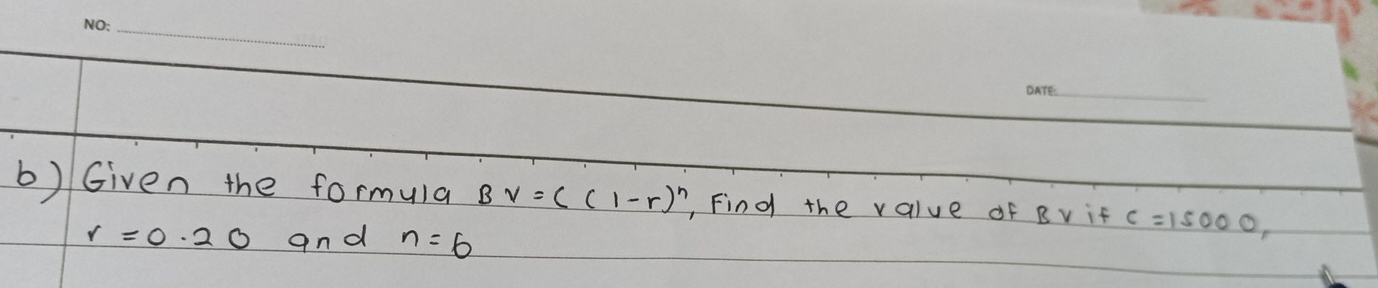 NO:
DATE:
b) Given the formula BV = C(1-r)ⁿ, Find the value of BV if C = 15000,
r = 0.20 and n = 6